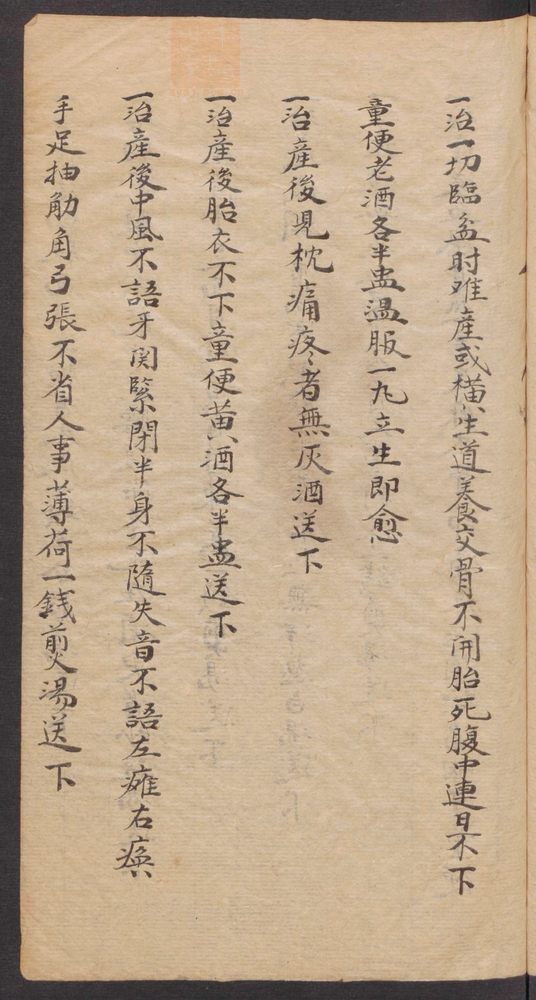 一治一切臨盆时难產或横生道養交骨不開胎死腹中連日不下
童便老酒各半盅温服一丸立生即愈
一治產後児枕痛疼者無灰酒送下
一治產後胎衣不下童便黄酒各半盅送下
一治產後中風不語牙関緊閉半身不隨失音不語左瘫右瘓
手足抽觔角弓張不省人事薄荷一錢煎湯送下